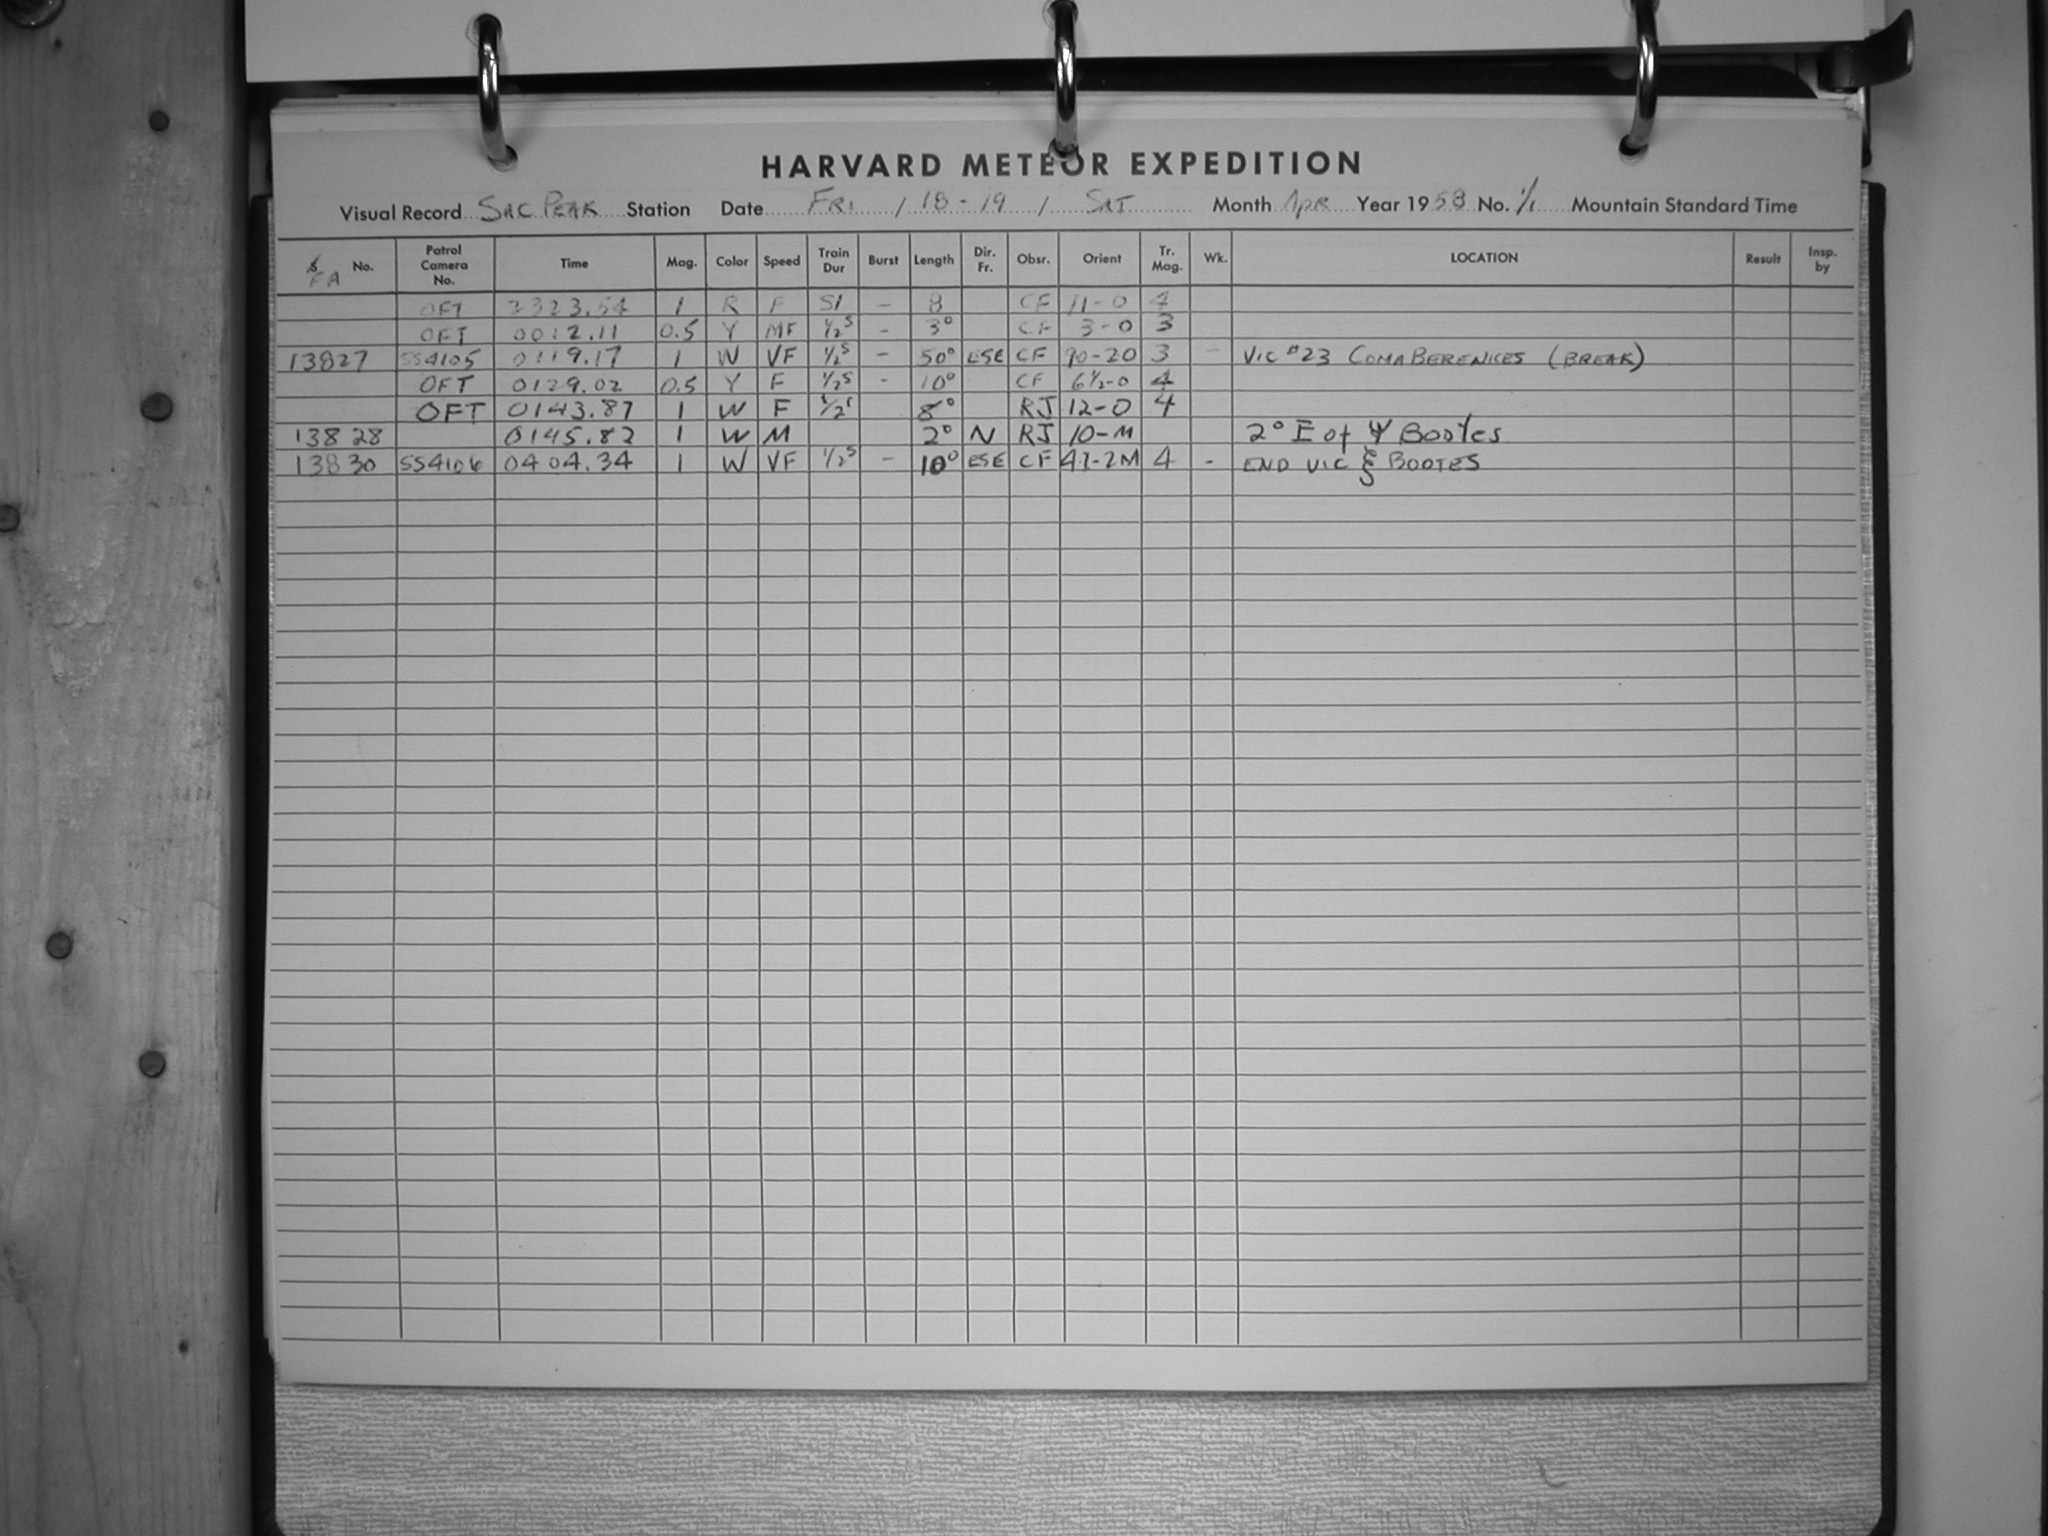 HARVARD METEOR EXPEDITION
Visual Record SAC PEAK Station Date FRI / 18-19 / SAT Month Apr Year 1958 No. 1/1 Mountain Standard Time
FA No. Patrol Camera No. Time Mag. Color Speed Train Dur Burst Length Dir. Fr. Obsr. Orient Tr. Mag. Wk. LOCATION Result Insp. by
OFT 2323.54 1 R F S1 - 8 CF 11-0 4
OFT 0012.11 0.5 Y MF 1/2s - 3° CF 3-0 3
13827 SS4105 0119.17 1 W VF 1/2s - 50° ESE CF 90-20 3 - VIC #23 COMA BERENICES (BREAK)
OFT 0129.02 0.5 Y F 1/2s - 10° CF 6½-0 4
OFT 0143.87 1 W F 1/2s 8° RJ 12-0 4
13828 0145.82 1 W M 2° N RJ 10-M 2° E of Ψ Bootes
13830 SS4106 0404.34 1 W VF 1/2s - 10° ESE CF 42-2M 4 - END VIC ξ BOOTES